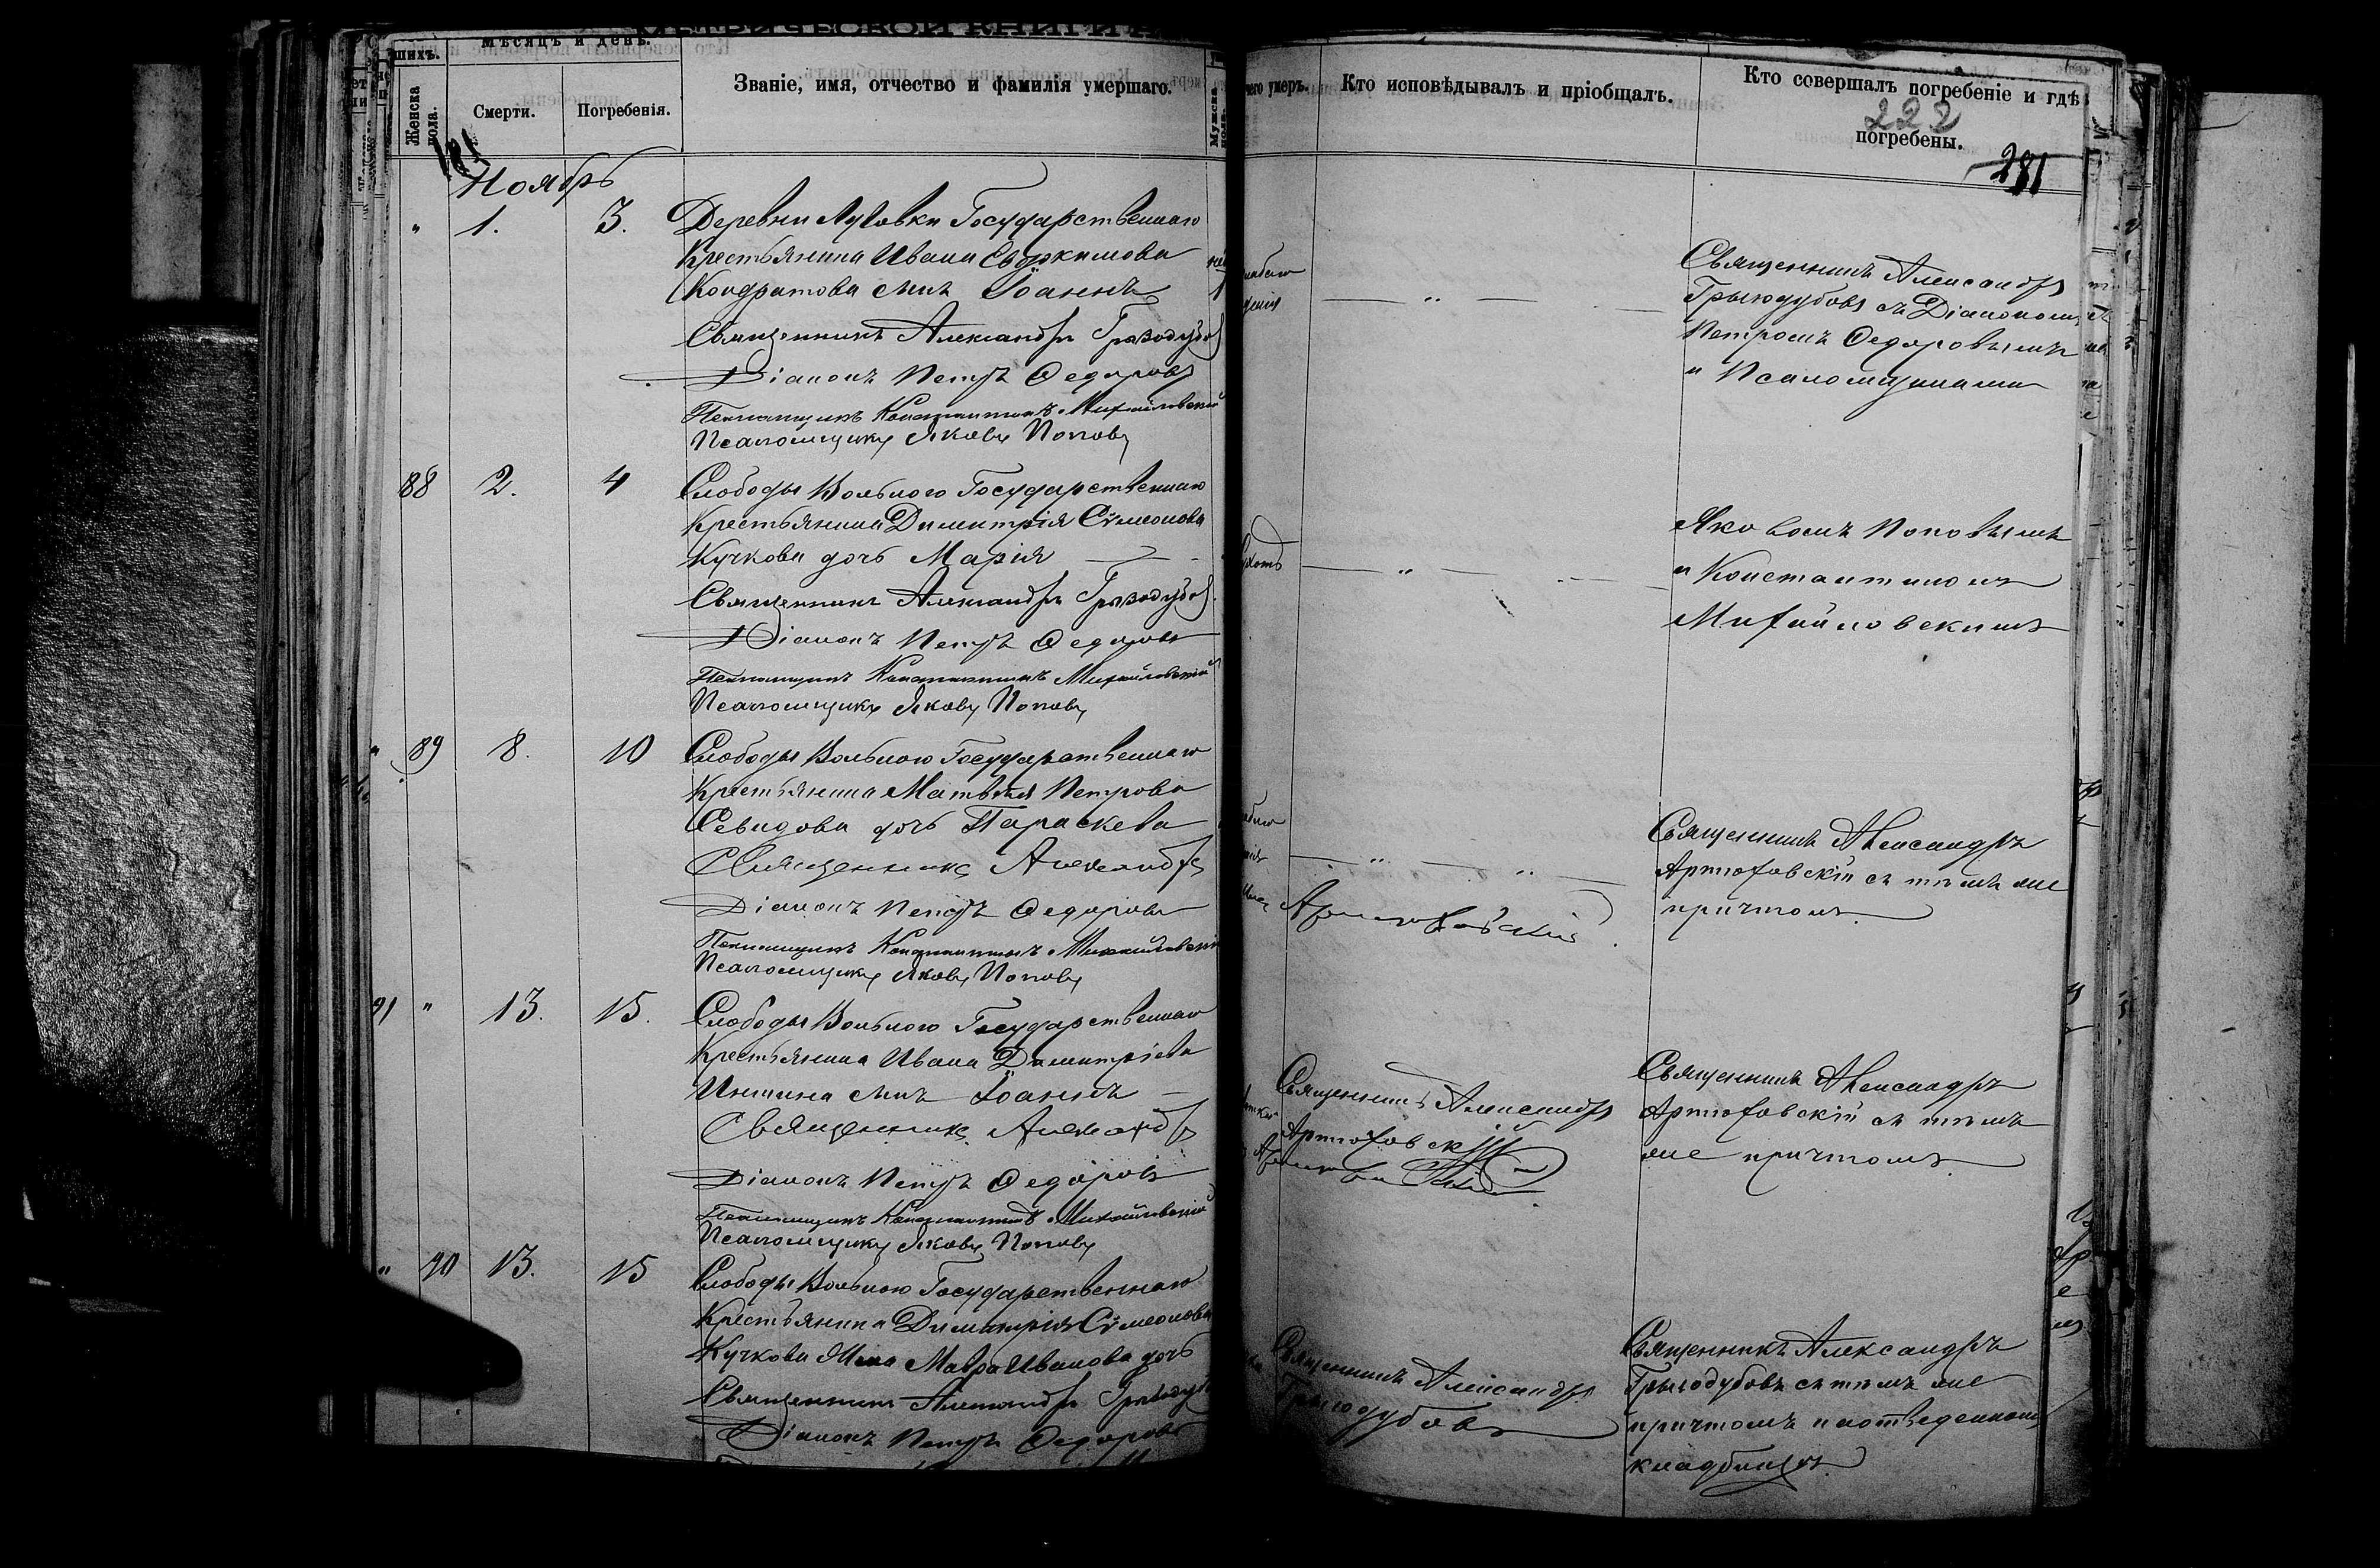 МЕТРИЧЕСКОЙ КНИГИ
шихъ.
Мѣсяцъ и день.
Женска пола.
Смерти.
Погребенія.
Званіе, имя, отчество и фамилія умершаго.
Ноябрь
" 1. 3. Деревни Государственнаго
Крестьянина Ивана
Кондратова сынъ Іоаннъ
Священникъ Александръ Грызодубовъ
Діаконъ Петръ Ѳедоровъ
Псаломщикъ Константинъ Михайловскій
Псаломщикъ Яковъ Поповъ
88 2. 4 Слободы Вольного Государственнаго
Крестьянина Димитрія Сѵмеонова
Кучкова дочь Марія
Священникъ Александръ Грызодубовъ
Діаконъ Петръ Ѳедоровъ
Псаломщикъ Константинъ Михайловскій
Псаломщикъ Яковъ Поповъ
" 89 8. 10 Слободы Вольного Государственнаго
Крестьянина Матвѣя Петрова
Севидова дочь Параскева
Священникъ Александръ
Діаконъ Петръ Ѳедоровъ
Псаломщикъ Константинъ Михайловскій
Псаломщикъ Яковъ Поповъ
91 " 13. 15. Слободы Вольного Государственнаго
Крестьянина Ивана Димитріева
сынъ Іоаннъ
Священникъ Александръ
Діаконъ Петръ Ѳедоровъ
Псаломщикъ Константинъ Михайловскій
Псаломщикъ Яковъ Поповъ
" 90 13. 15 Слободы Вольного Государственнаго
Крестьянина Димитрія Сѵмеонова
Кучкова жена Мавра Иванова дочь
Священникъ Александръ
Діаконъ Петръ Ѳедоровъ
Мужска пола.
чего умеръ.
Кто исповѣдывалъ и пріобщалъ.
Кто совершалъ погребеніе и гдѣ
погребены.
222
281
Священникъ Александръ
Грызодубовъ съ Діакономъ
Петромъ Ѳедоровымъ
и Псаломщиками
Яковомъ Поповымъ
и Константиномъ
Михайловскимъ
Священникъ Александръ
Артюховскій съ тѣмъ же
причтомъ.
Артюховскій
Священникъ Александръ
Артюховскій
Священникъ Александръ
Артюховскій съ тѣмъ
же причтомъ
Священникъ Александръ
Грызодубовъ
Священникъ Александръ
Грызодубовъ съ тѣмъ же
причтомъ на отведенномъ
кладбищѣ.